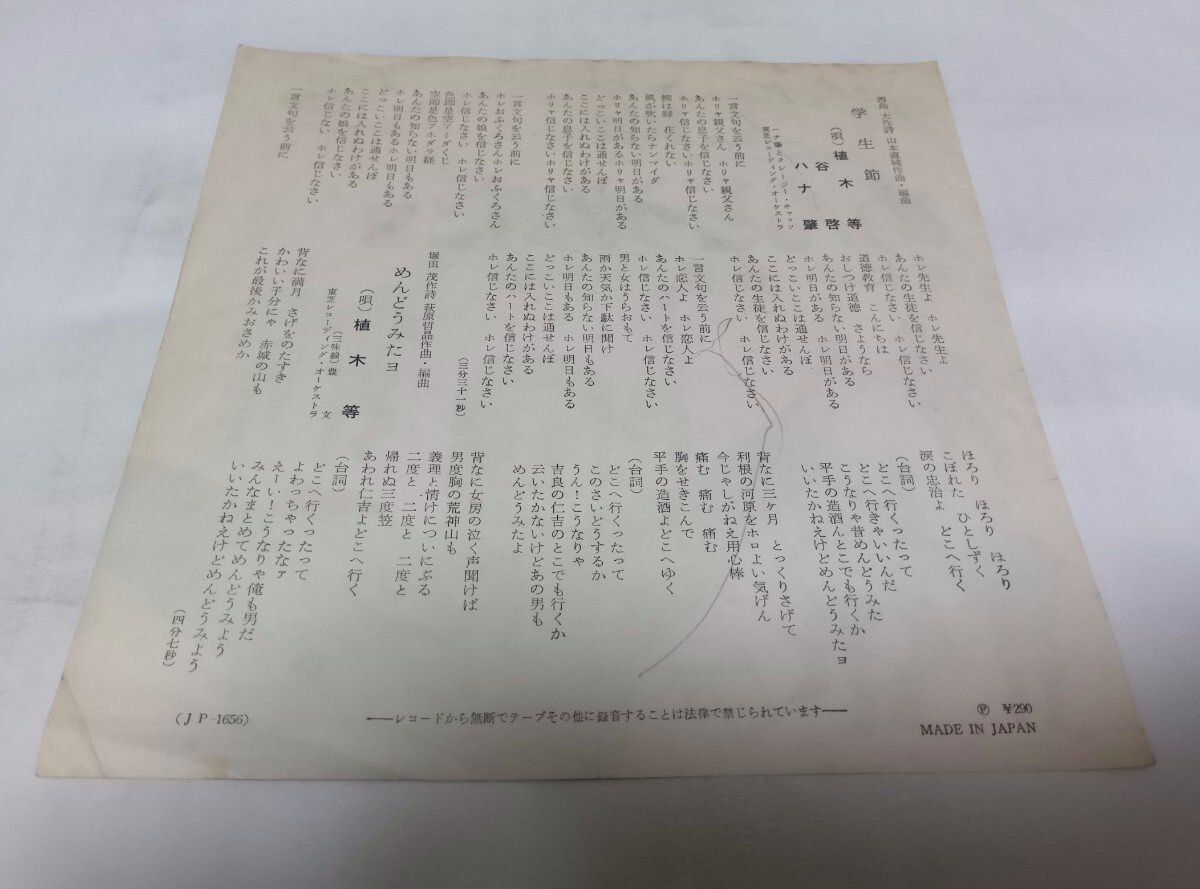 西島 大作詩 山本直純作曲・編曲
学生節
(唄) 植木 等
谷 啓
ハナ 肇
ハナ肇とクレージー・キャッツ
東芝レコーディング・オーケストラ
一言文句を云う前に
ホリャ親父さん ホリャ親父さん
あんたの息子を信じなさい
ホリャ信じなさいホリャ信じなさい
柳は緑 花くれない
風が吹いたらナンマイダ
あんたの知らない明日がある
ホリャ明日があるホリャ明日がある
どっこいここは通せんぼ
ここには入れぬわけがある
あんたの息子を信じなさい
ホリャ信じなさいホリャ信じなさい
一言文句を云う前に
ホレおふくろさんホレおふくろさん
あんたの娘を信じなさい
ホレ信じなさい ホレ信じなさい
色即是空アミダくじ
空即是色アホダラ経
あんたの知らない明日もある
ホレ明日もあるホレ明日もある
どっこいここは通せんぼ
ここには入れぬわけがある
あんたの娘を信じなさい
ホレ信じなさい ホレ信じなさい
一言文句を云う前に
ホレ先生よ ホレ先生よ
あんたの生徒を信じなさい
ホレ信じなさい ホレ信じなさい
道徳教育 こんにちは
おしつけ道徳 さようなら
あんたの知らない明日がある
ホレ明日がある ホレ明日がある
どっこいここは通せんぼ
ここには入れぬわけがある
あんたの生徒を信じなさい
ホレ信じなさい ホレ信じなさい
一言文句を云う前に
ホレ恋人よ ホレ恋人よ
あんたのハートを信じなさい
ホレ信じなさい ホレ信じなさい
男と女はうらおもて
雨か天気か下駄に聞け
あんたの知らない明日もある
ホレ明日もある ホレ明日もある
どっこいここは通せんぼ
ここには入れぬわけがある
あんたのハートを信じなさい
ホレ信じなさい ホレ信じなさい
(三分三十一秒)
堀田 茂作詩 萩原哲晶作曲・編曲
めんどうみたヨ
(唄) 植木 等
(三味線) 豊 文
東芝レコーディング・オーケストラ
背なに満月 さげをのたすき
かわいい子分にゃ 赤城の山も
これが最後かみおさめか
ほろり ほろり ほろり
こぼれた ひとしずく
涙の忠治よ どこへ行く
(台詞)
どこへ行くったって
どこへ行きゃいいんだ
こうなりゃ昔めんどうみた
平手の造酒んとこでも行くか
いいたかねえけどめんどうみたヨ
背なに三ヶ月 とっくりさげて
利根の河原をホロよい気げん
今じゃしがねえ用心棒
痛む 痛む 痛む
胸をせきこんで
平手の造酒よどこへゆく
(台詞)
どこへ行くったって
このさいどうするか
うん!こうなりゃ
吉良の仁吉のとこでも行くか
云いたかないけどあの男も
めんどうみたよ
背なに女房の泣く声聞けば
男度胸の荒神山も
義理と情けについにぶる
二度と 二度と 二度と
帰れぬ三度笠
あわれ仁吉よどこへ行く
(台詞)
どこへ行くったって
よわっちゃったなァ
えーい!こうなりゃ俺も男だ
みんなまとめてめんどうみよう
いいたかねえけどめんどうみよう
(四分七秒)
(JP-1656)
――レコードから無断でテープその他に録音することは法律で禁じられています――
Ⓟ ¥290
MADE IN JAPAN